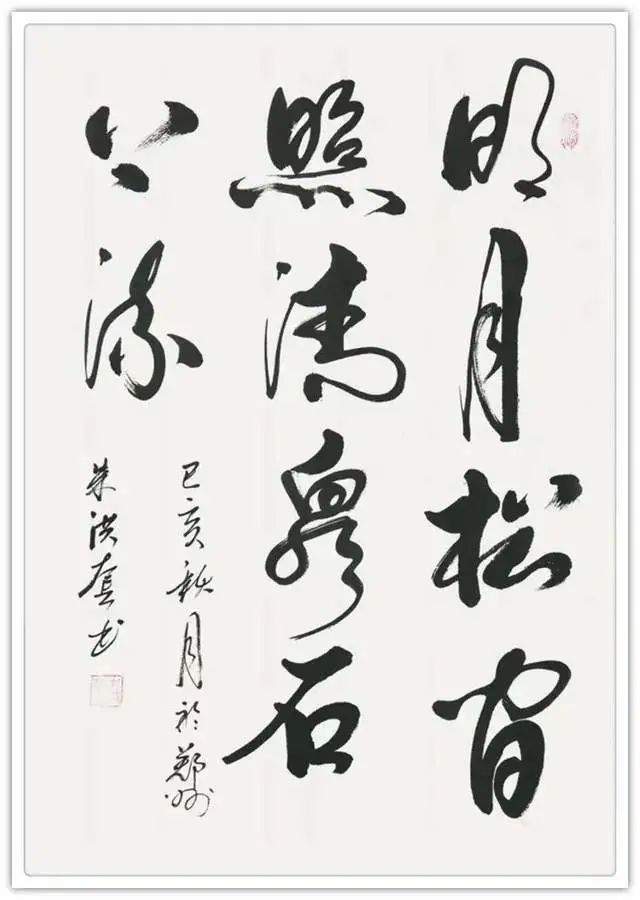 明月松间
照清泉石
上流
己亥秋月於郑州
朱洪套书